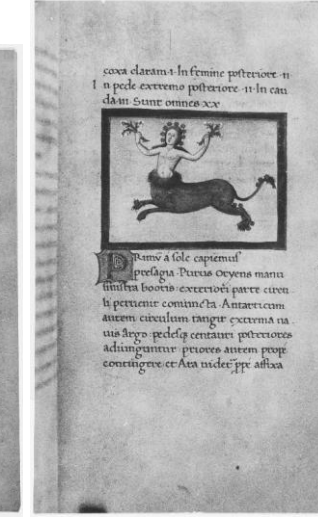 coxa claram·ı· In femine posteriore ·ıı·
I n pede extremo posteriore ·ıı· In cau
da·ııı· Sunt omnes xx
PRimū a sole capiemus
presagia · Purus oryens
bootis · exteriori parte
puenit Antarticum
autem circulum tangit extrema na
uis argo · pedesq; centauri posteriores
adiunguntur priores autem prope
contingere · et Ara uidet affixa